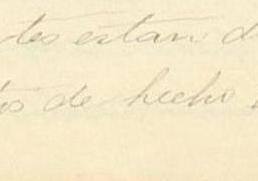 tes estan d
os de hecho